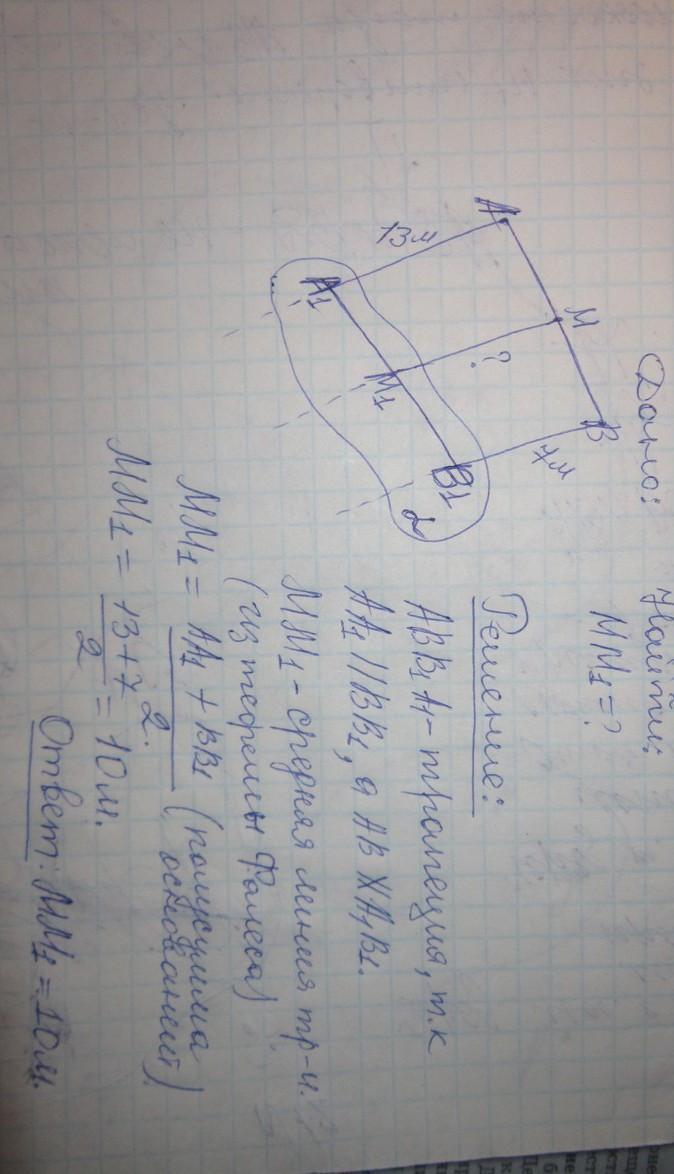 Дано:
Найти:
MM1=?
A
M
B
13м
?
7м
A1
M1
B1
α
Решение:
ABB1A1-трапеция, т.к
AA1 || BB1, а AB ∦ A1B1.
MM1-средняя линия тр-и.
(из теоремы Фалеса)
MM1 = AA1 + BB1 / 2. (полусумма
оснований)
MM1 = 13+7 / 2 = 10м.
Ответ: MM1 = 10м.